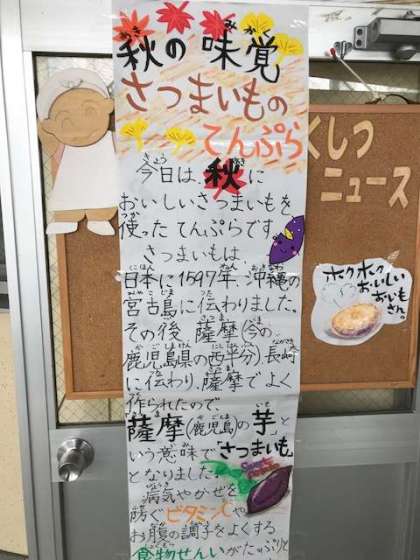 秋の味覚
さつまいもの
てんぷら
今日は、秋に
おいしいさつまいもを
使ったてんぷらです。
さつまいもは、
日本に1597年、沖縄の
宮古島に伝わりました。
その後、薩摩(今の
鹿児島県の西半分)、長崎
に伝わり、薩摩でよく
作られたので、
薩摩(鹿児島)の芋と
いう意味で「さつまいも」
となりました。
病気やかぜを
防ぐビタミンCや
お腹の調子をよくする
食物せんいがたっぷりと
くしつ
ニュース
ホクホク
おいしい
おいも
さん。